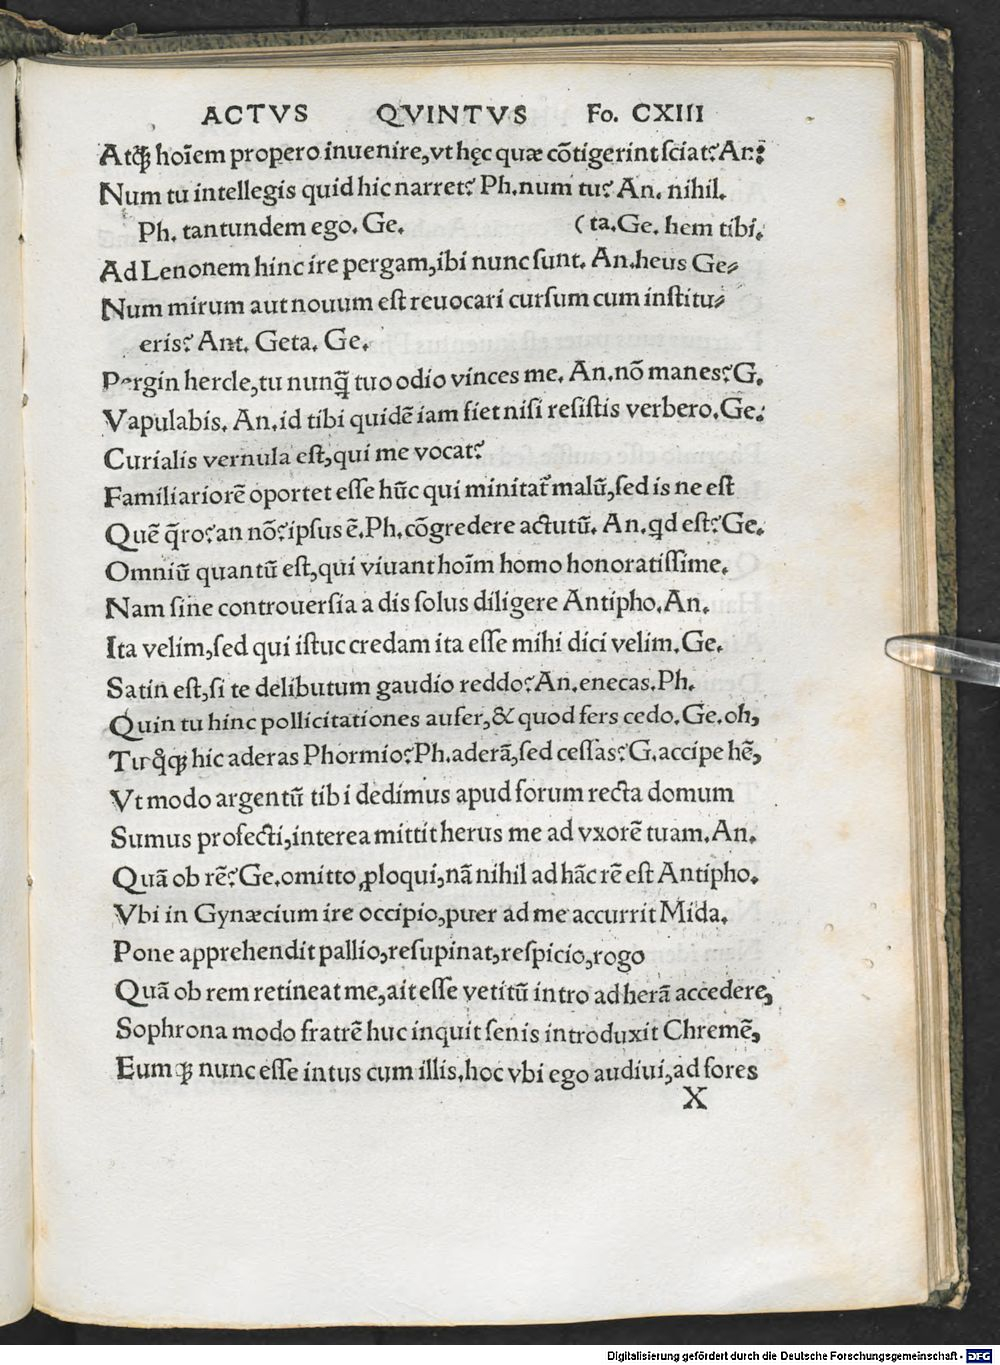 ACTVS QVINTVS Fo. CXIII
Atqꝫ hoīem propero inuenire, vt hęc quæ cōtigerint sciat? An:
Num tu intellegis quid hic narret? Ph. num tu? An. nihil.
Ph. tantundem ego. Ge. (ta. Ge. hem tibi.
Ad Lenonem hinc ire pergam, ibi nunc sunt. An. heus Ge⸗
Num mirum aut nouum est reuocari cursum cum institu⸗
eris? Ant. Geta. Ge.
Pergin hercle, tu nunq̄ tuo odio vinces me. An. nō manes? G.
Vapulabis. An. id tibi quidē iam fiet nisi resistis verbero. Ge.
Curialis vernula est, qui me vocat?
Familiariorē oportet esse hūc qui minitat᷑ malū, sed is ne est
Quē q̄ro? an nō? ipsus ē. Ph. cōgredere actutū. An. qd est? Ge.
Omniū quantū est, qui viuant hoīm homo honoratissime.
Nam sine controuersia a dis solus diligere Antipho. An.
Ita velim, sed qui istuc credam ita esse mihi dici velim. Ge.
Satin est, si te delibutum gaudio reddo? An. enecas. Ph.
Quin tu hinc pollicitationes aufer, & quod fers cedo. Ge. oh,
Tu q̊qꝫ hic aderas Phormio? Ph. aderā, sed cessas? G. accipe hē,
Vt modo argentū tibi dedimus apud forum recta domum
Sumus profecti, interea mittit herus me ad vxorē tuam. An.
Quā ob rē? Ge. omitto ꝓloqui, nā nihil ad hāc rē est Antipho.
Vbi in Gynæcium ire occipio, puer ad me accurrit Mida.
Pone apprehendit pallio, resupinat, respicio, rogo
Quā ob rem retineat me, ait esse vetitū intro ad herā accedere,
Sophrona modo fratrē huc inquit senis introduxit Chremē,
Eumqꝫ nunc esse intus cum illis, hoc vbi ego audiui, ad fores
X
Digitalisierung gefördert durch die Deutsche Forschungsgemeinschaft - DFG